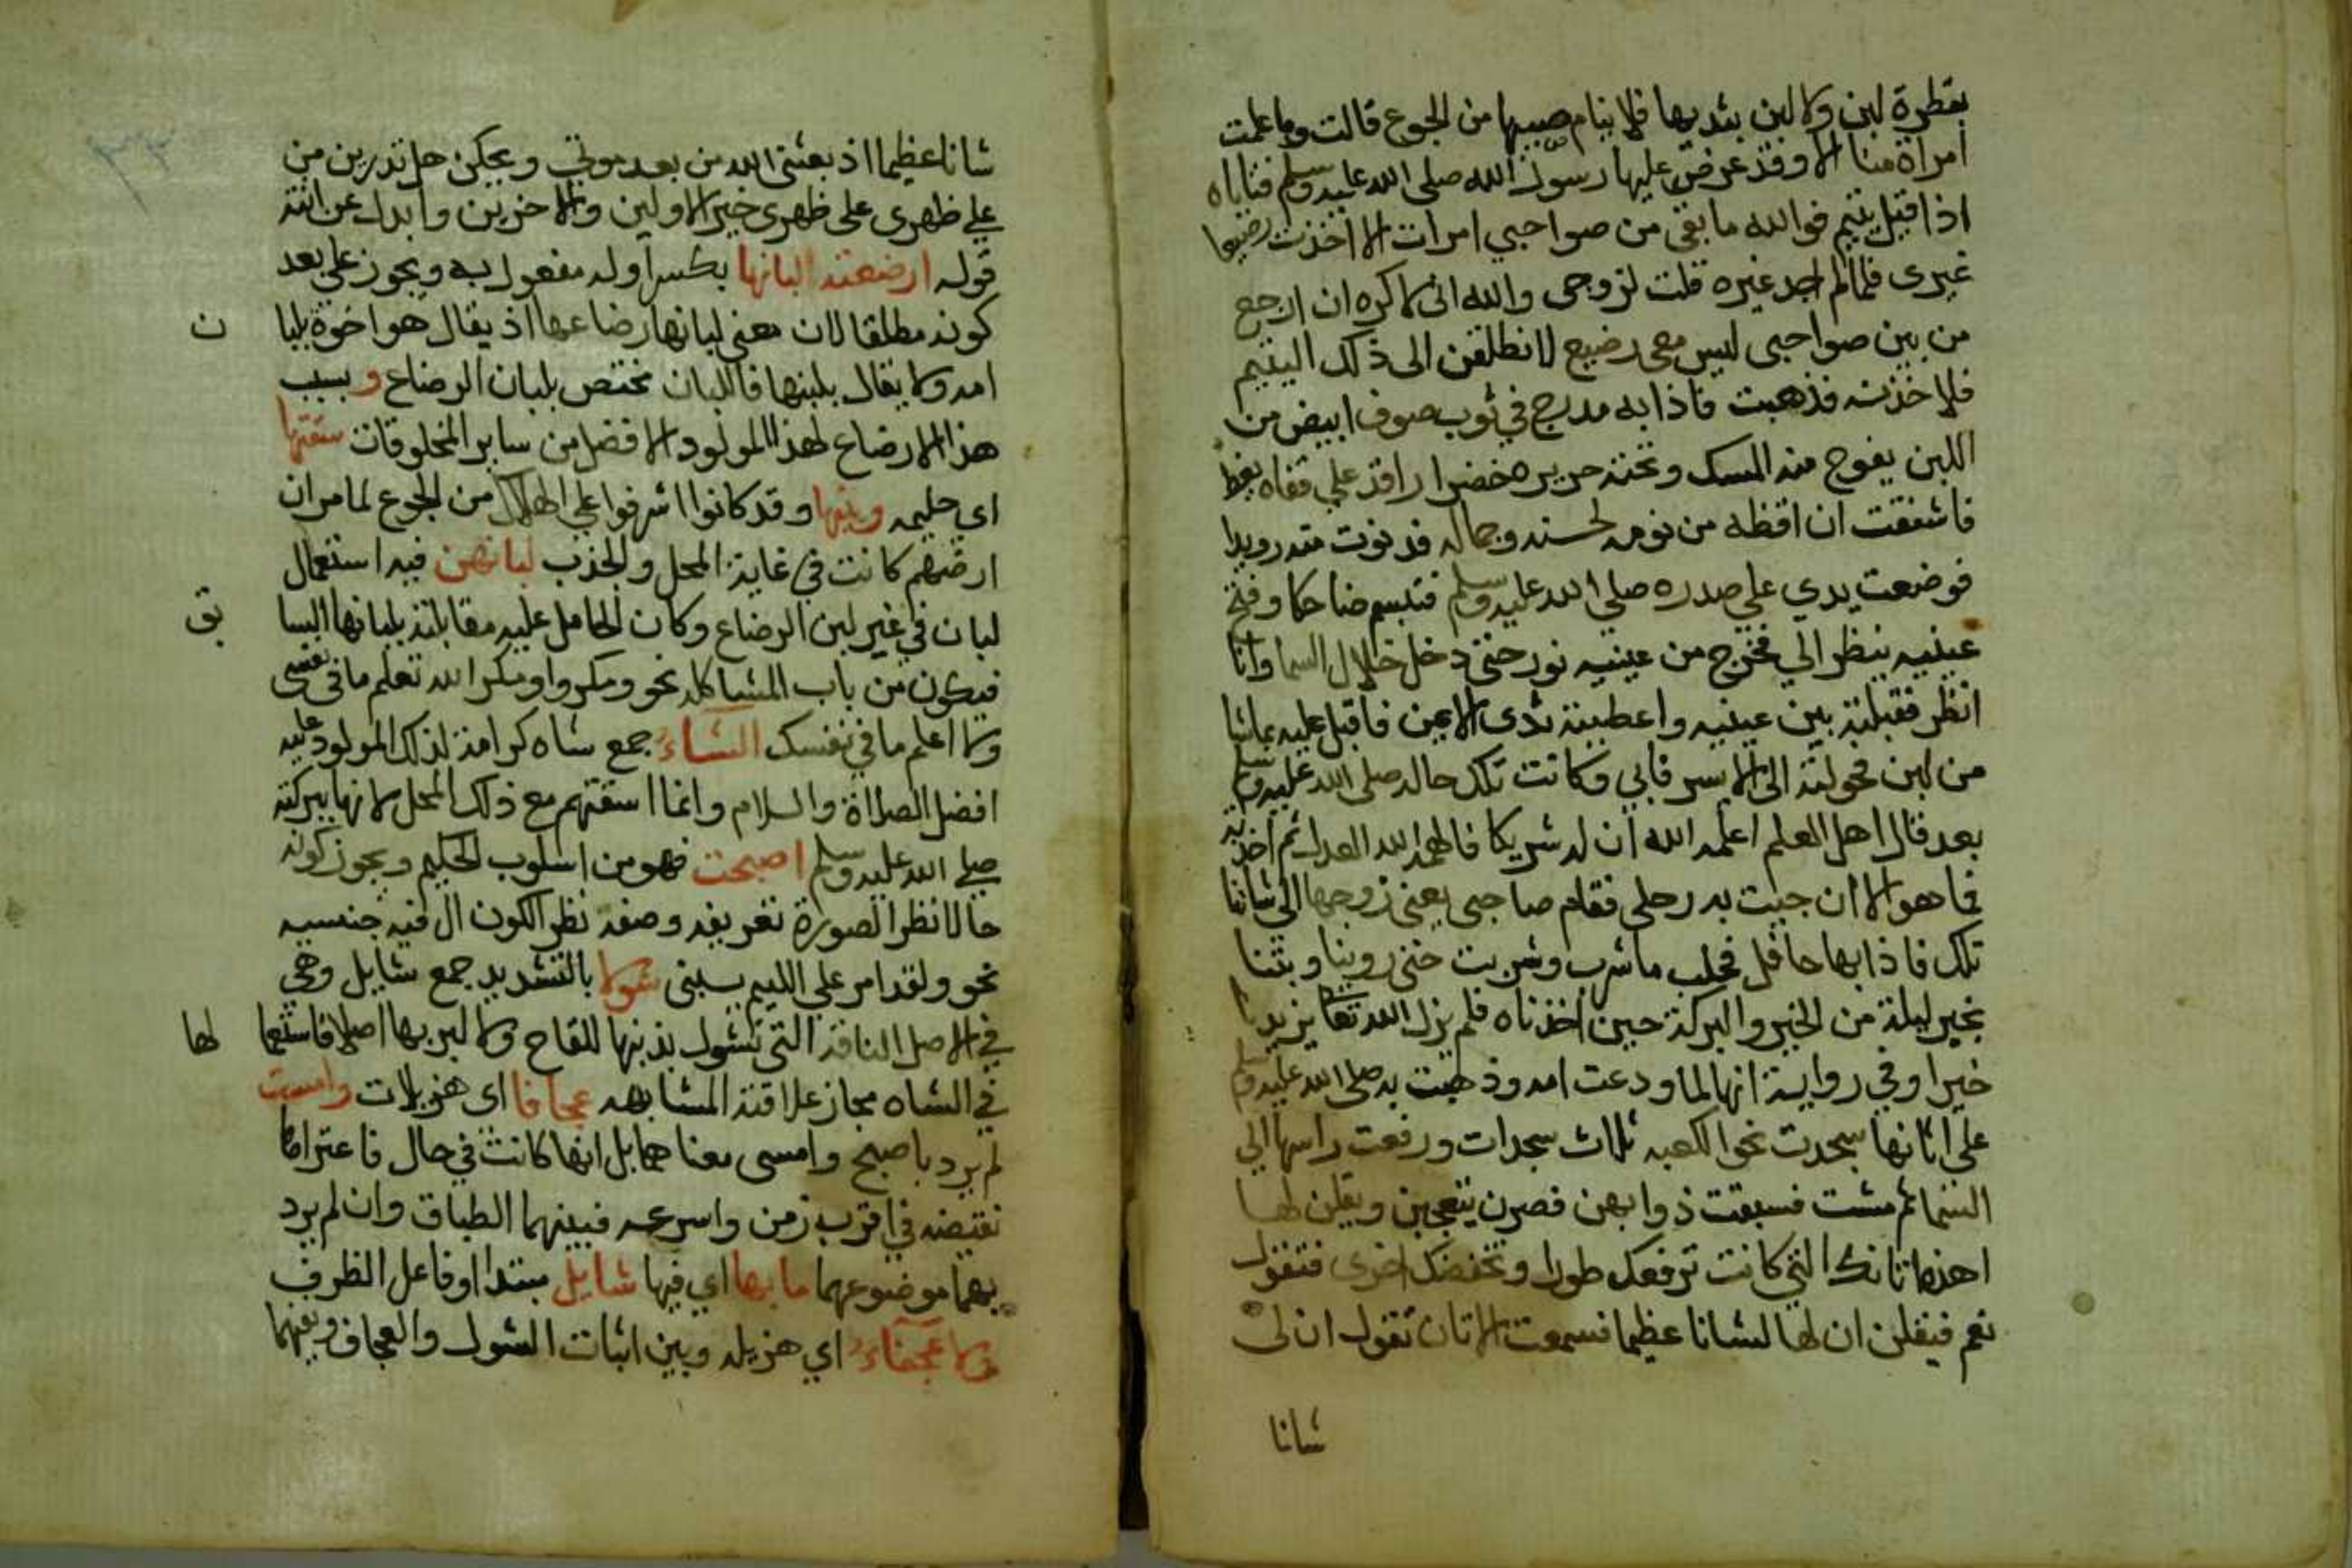 بقطرة لبن ولا لبن بثديها فلا ينام صبيها من الجوع قالت وما علمت
امراة منا الا وقد عرض عليها رسول الله صلى الله عليه وسلم فتاباه
اذا قيل يتيم فوالله ما بقى من صواحبي امرات الا اخذت رضيعا
غيرى فلما لم اجد غيره قلت لزوجى والله انى لاكره ان ارجع
من بين صواحبى ليس معى رضيع لانطلقن الى ذلك اليتيم
فلاخذنه فذهبت فاذا به مدرج في ثوب صوف ابيض من
اللبن يفوح منه المسك وتحته حريره خضرا راقد علي قفاه يغط
فاشفقت ان اقظه من نومه لحسنه وجماله فدنوت منه رويدا
فوضعت يدي علي صدره صلى الله عليه وسلم فتبسم ضاحكا وفتح
عينيه ينظر الي فخرج من عينيه نور حتى دخل خلال السما وانا
انظر فقبلته بين عينيه واعطيته ثدى الايمن فاقبل عليه بماشا
من لبن فحولته الى الايسر فابي وكانت تلك حاله صلى الله عليه وسلم
بعد قال اهل العلم اعلمه الله ان له شريكا فالهمه الله العدل ثم اخذته
فما هو الا ان جيت به رحلى فقام صاحبى يعنى زوجها الى شاتنا
تلك فاذا بها حافل فحلب ما شرب وشربت حتى روينا وبتنا
بخير ليلة من الخير والبركة حين اخذناه فلم يزل الله تعا يزيدنا
خيرا وفي رواية انها لما ودعت امه وذهبت به صلى الله عليه وسلم
علي اتانها سجدت نحو الكعبه ثلاث سجدات ورفعت راسها الي
السما ثم مشت فسبقت ذوابهن فصرن يتعجبن ويقلن لها
اهذه اتانك التي كانت ترفعك طورا وتخفضك اخرى فتقول
نعم فيقلن ان لها لشانا عظيما فسمعت الاتان تقول ان لى
شانا
شانا عظيما اذ بعثنى الله من بعد موتي ويحكن هل تدرين من
علي ظهرى على ظهرى خير الاولين والاخرين وابدل عن انته
قوله ارضعته البانها بكسر اوله مفعول به ويجوز علي بعد
كونه مطلقا لان معنى لبانها رضاعها اذ يقال هو اخوة بلبا ن
امه ولا يقال بلبنها فاللبان مختص بلبان الرضاع و بسبب
هذا الارضاع لهذا المولود الافضل من ساير المخلوقات سقتها
اي حليمه وبنيها وقد كانوا اشرفوا علي الهلاك من الجوع لما مر ان
ارضهم كانت في غاية المحل والجذب لبانهن فيه استعمال
لبان في غير لبن الرضاع وكان الحامل عليه مقابلته بلبانها السا بق
فيكون من باب المشاكله نحو ومكروا ومكر الله تعلم ما فى نفسى
ولا اعلم ما في نفسك الشاء جمع شاه كرامة لذلك المولود عليه
افضل الصلاة والسلام وانما اسقتهم مع ذلك المحل لانها ببركته
صلي الله عليه وسلم اصبحت فهو من اسلوب الحكيم ويجوز كونه
حالا نظرا لصورة تعريفه وصفه نظر الكون ال فيه جنسيه
نحو ولقد امر علي الليم يسبنى شولا بالتشديد جمع شايل وهي
في الاصل الناقة التي تشول بذنبها للقاح ولا لبن بها اصلا فاستعما لها
في الشاه مجاز علاقته المشابهه عجافا اى هزيلات وامست
لم يرد باصبح وامسى معناهما بل انها كانت في حال فاعتراها
نقيضه في اقرب زمن واسرعه فبينهما الطباق وان لم يرد
بهما موضوعهما ما بها اي فيها شايل مبتدا او فاعل الظرف
ولا عجفاء اي هزيله وبين اثبات الشول والعجاف ونفيهما